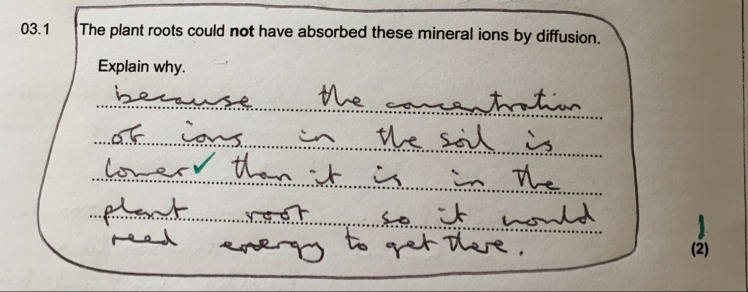 03.1 The plant roots could not have absorbed these mineral ions by diffusion.
Explain why.
because the concentration
of ions in the soil is
lower ✓ than it is in the
plant root so it would
need energy to get there.
1
(2)